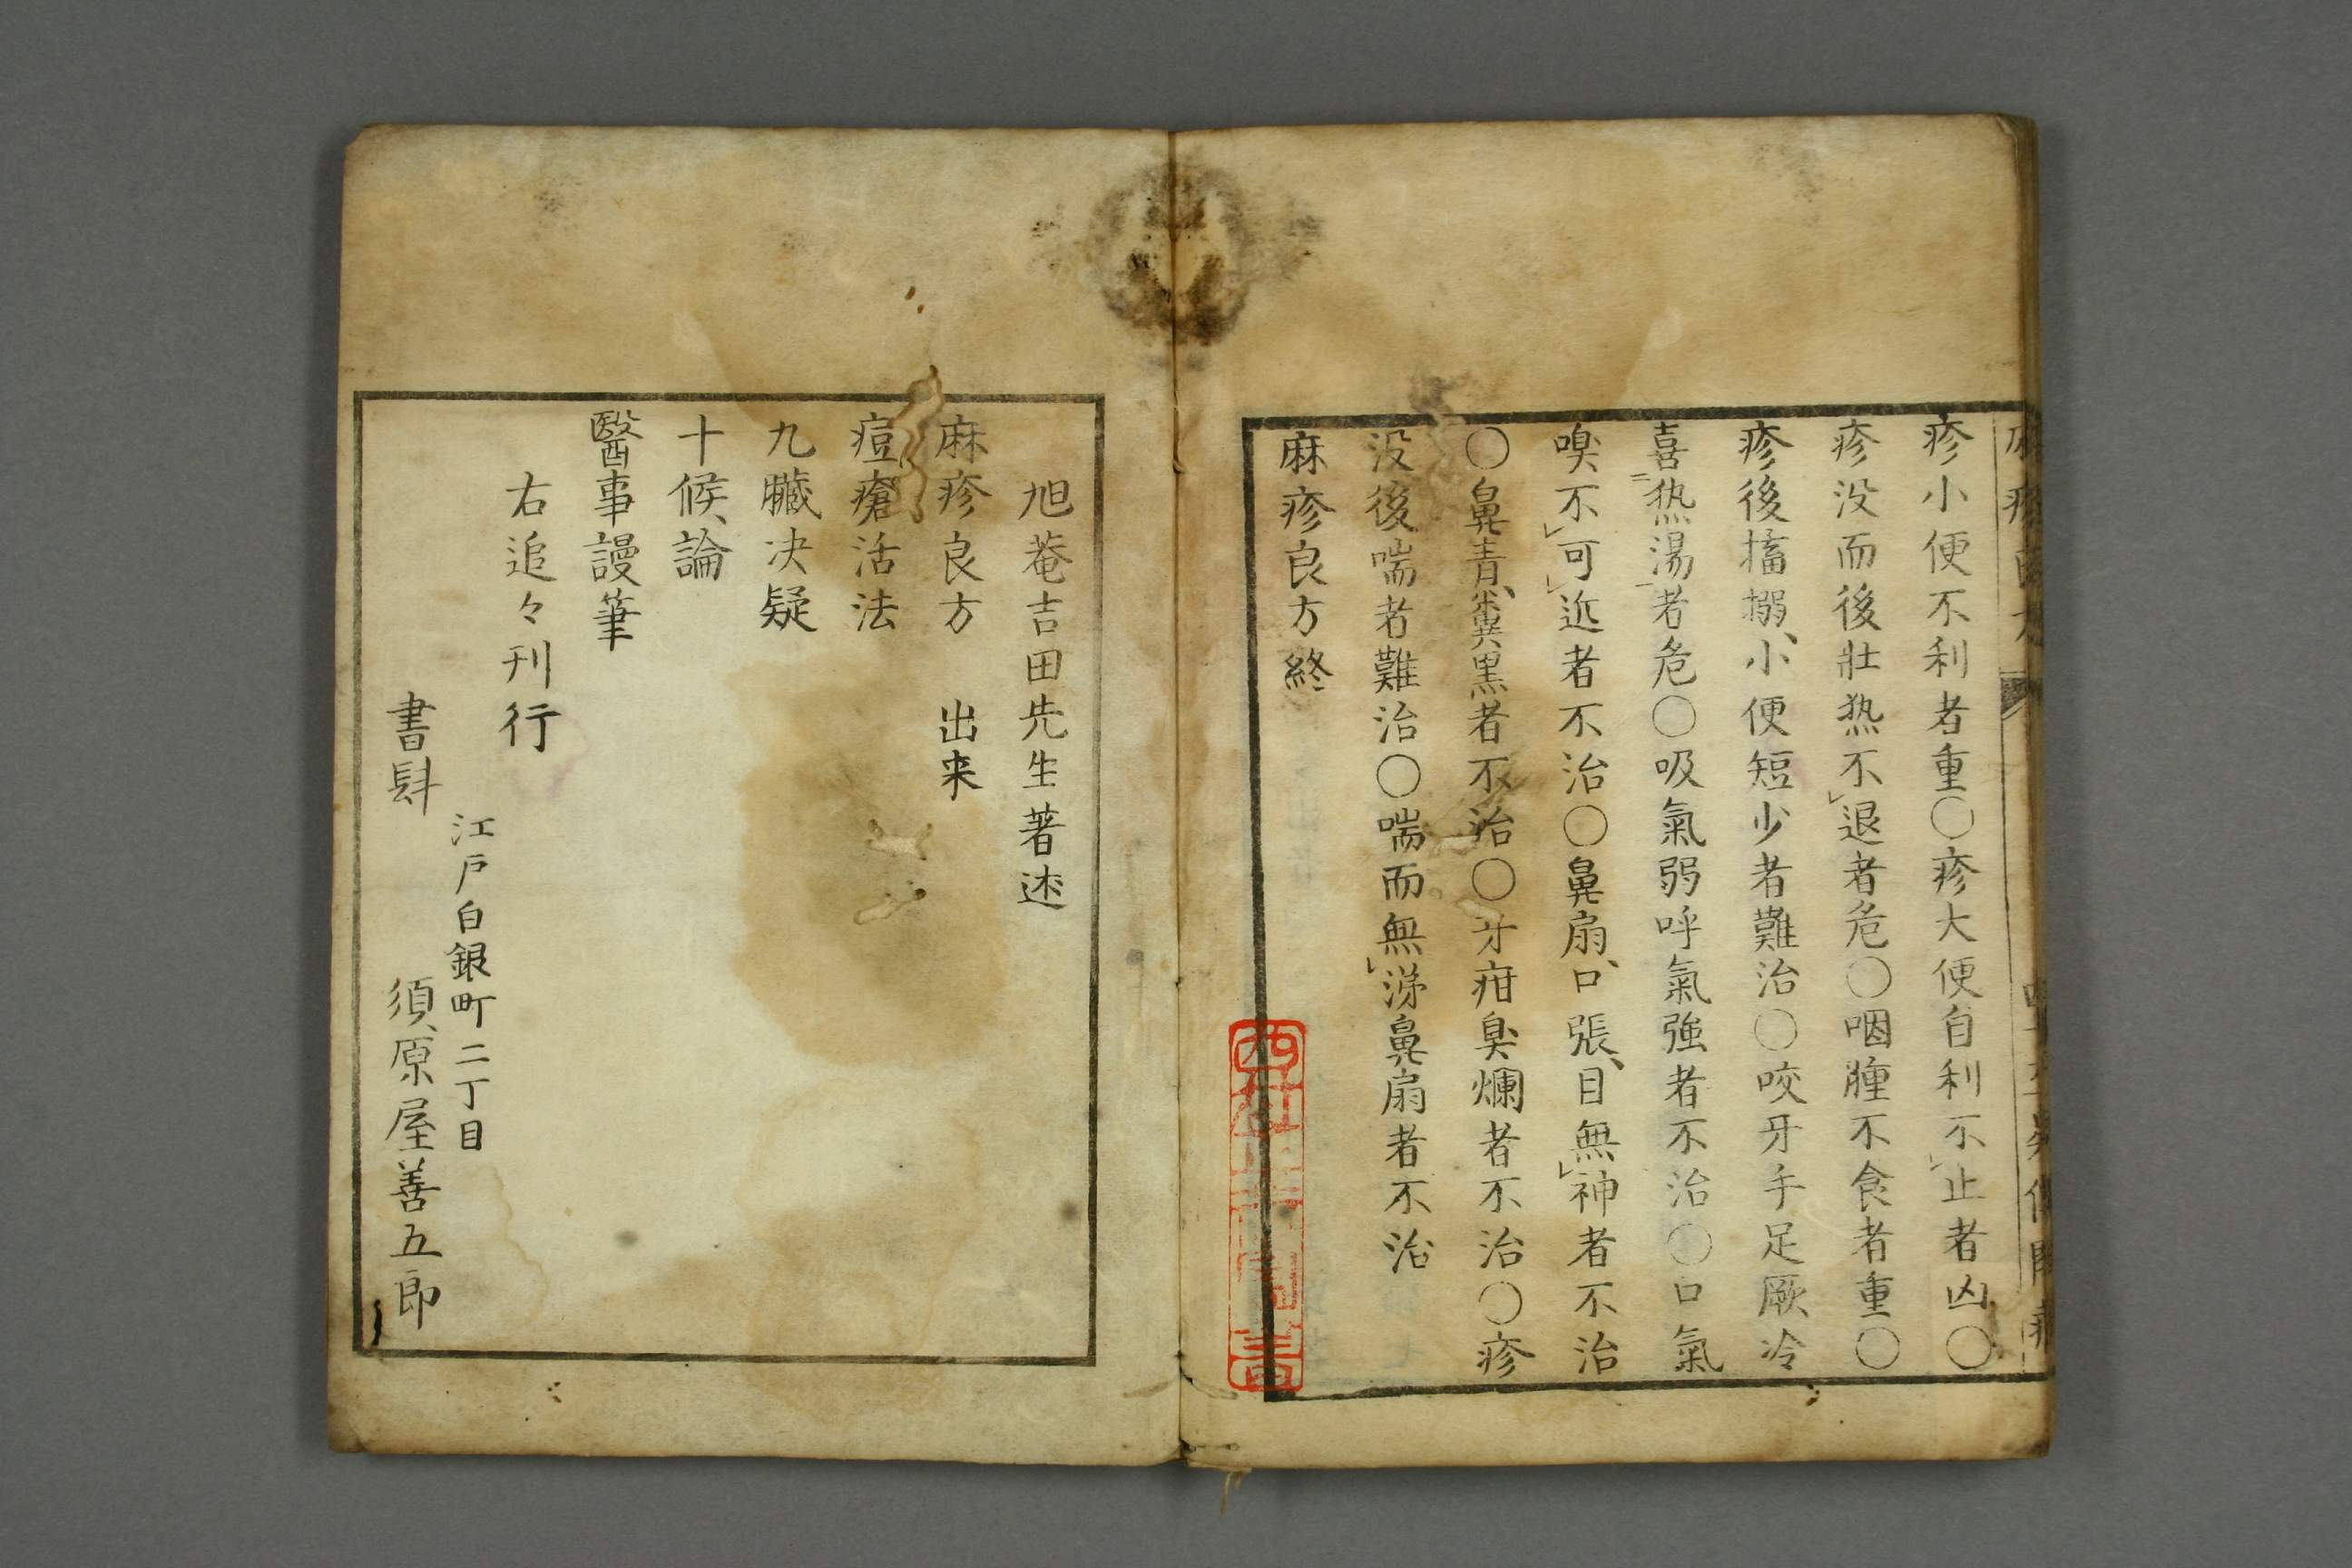 疹小便不利者重〇疹大便自利不止者凶〇
疹没而後壯热不退者危〇咽腫不食者重〇
疹後搐搦、小便短少者難治〇咬牙手足厥冷
喜热湯者危〇吸氣弱呼氣強者不治〇口氣
嗅不可近者不治〇鼻扇、口張、目無神者不治
〇鼻青、糞黒者不治〇牙疳臭爛者不治〇疹
没後喘者難治〇喘而無涕鼻扇者不治
麻疹良方終
旭菴吉田先生著述
麻疹良方 出来
痘瘡活法
九臓决疑
十候論
醫事謾筆
右追々刊行
江戸白銀町二丁目
書肆 須原屋善五郎